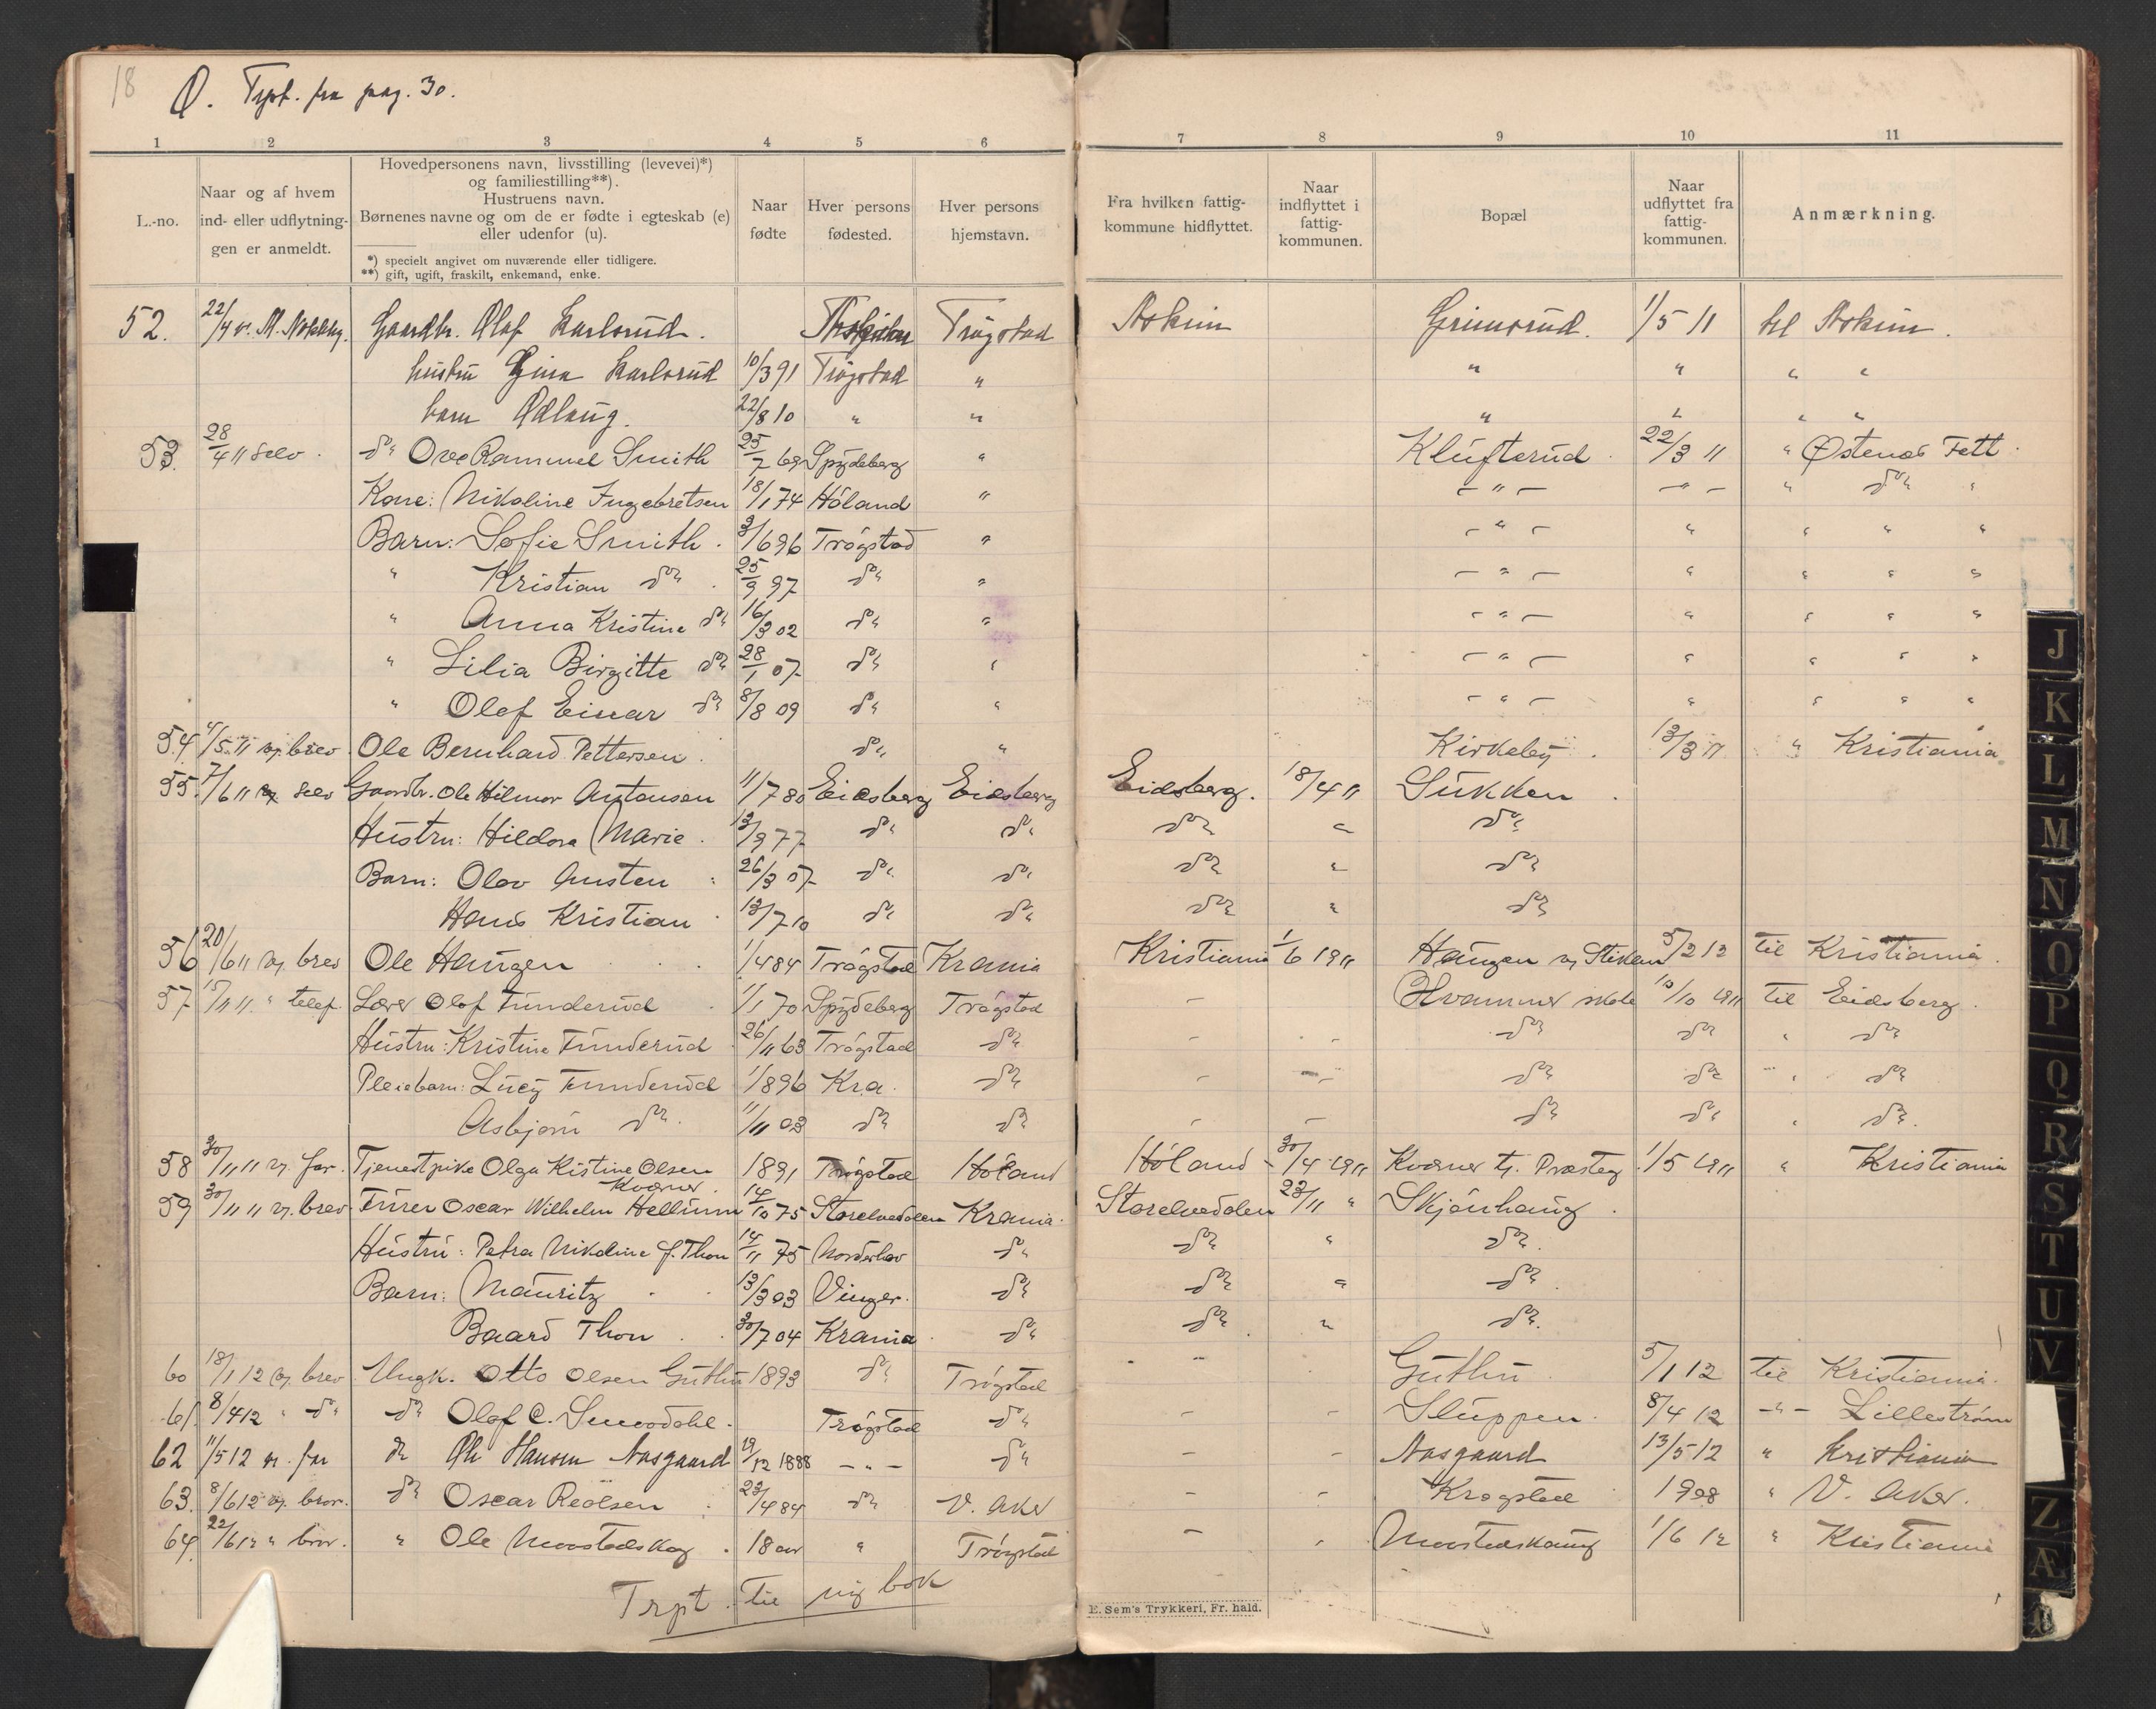 18 Ø. Trpt. fra pag. 30.
1 2 3 4 5 6 7 8 9 10 11
L.-no.
Naar og af hvem ind- eller udflytningen er anmeldt.
Hovedpersonens navn, livsstilling (levevei)*) og familiestilling**).
Hustruens navn.
Børnenes navne og om de er fødte i egteskab (e) eller udenfor (u).
*) specielt angivet om nuværende eller tidligere.
**) gift, ugift, fraskilt, enkemand, enke.
Naar fødte
Hver persons fødested.
Hver persons hjemstavn.
Fra hvilken fattigkommune hidflyttet.
Naar indflyttet i fattigkommunen.
Bopæl
Naar udflyttet fra fattigkommunen.
Anmærkning.
52. 22/4 v. M. Gaardbr. Olaf Karlsrud. Trøgstad Askim Grimsrud. 1/5 11 til Askim.
hustru Gina Karlsrud 10/3 91 Trøgstad " " " " "
barn Odlaug. 22/8 10 " " " " " "
53. 28/4 11 selv. do Ove Rammel Smith 25/7 69 Spydeberg " Klufterud. 22/3 11 " Østenas Fett.
Kone: Nikoline Ingebretsen 18/1 74 Høland " - " - - " - " do "
Barn: Sofie Smith. 3/6 96 Trøgstad " - " - " " " "
" Kristian do. 25/9 97 do " - " - " " " "
" Anna Kristine do 16/3 02 do " - " - " " " "
" Lilia Birgitte do 28/1 07 do " - " - " " " "
" Olef Einar do 8/8 09 do " - " - " " " "
54. 4/5 11 v. brev. Ole Bernhard Pettersen. do " Kirkeby. 13/3 11 " Kristiania
55. 7/6 11 selv Gaardbr. Ole Hilmar Antonsen 11/7 80 Eidsberg Eidsberg Eidsberg. 18/4 11 Sukken.
Hustru: Hildora Marie. 13/9 77 do do do " do
Barn: Olav Austen 26/3 07 do do do " do
Hans Kristian 13/7 10 do do do " do
56 20/6 11 v. brev Ole Haugen 1/4 84 Trøgstad Krania Kristiania 1/6 1911 Haugen v. 5/2 12 til Kristiania.
57 15/11 11. " telef. Lærer Olaf Funderud 1/1 70 Spydeberg Trøgstad - Hvammer skole 10/10 1911 til Eidsberg.
Hustru: Kristine Funderud 26/11 63 Trøgstad do - - do do " do
Pleiebarn: Lucy Funderud 1/8 96 Kra. do - - do do " do
Asbjørn do. 11/11 03 do do - - do do " do.
58 30/11 11 v. far. Tjenestpike Olga Kistine Olsen Kværner. 1891 Trøgstad Høland Høland - 30/4 1911 Kværner tj. Præsteg. 1/5 1911 " Kristiania
59 30/11 11 v. brev. Fürer Oscar Wilhelm Hellum 14/10 75 Storelvedalen Krania. Storelvedalen 23/11 " Skjønhaug.
Hustru: Petra Nikoline f. Thon 14/11 75 Norderhov do do " do.
Barn: Mauritz 13/3 03 Vinger. do do " do.
Baard Thon 30/7 04 Krania do do " do.
60 18/1 12 v. brev Ungk. Otto Olsen Guthu 1893 do Trøgstad - - Guthu 5/1 12 til Kristiania.
61. 8/4 12 " do do Olaf C. Smedsdahl. Trøgstad do - - Sluppen. 8/4 12 - " - Lillestrøm
62 11/5 12 v. far do Ole Hansen Aasgaard 19/12 1888 - " - do - - Aasgaard 13/5 12 " Kristiania
63. 8/6 12 v. bror. do Oscar Reolsen 23/4 84 do V. Aker - - Krogstad 1908 " V. Aker.
64. 22/6 12 " bror. " Ole 18 aar " Trøgstad - 1/6 12 " Kristiania
Trpt. til ny bok
E. Sem's Trykkeri, Fr. hald.
J
K
L
M
N
O
P
Q
R
S
T
U
V
Z
Æ